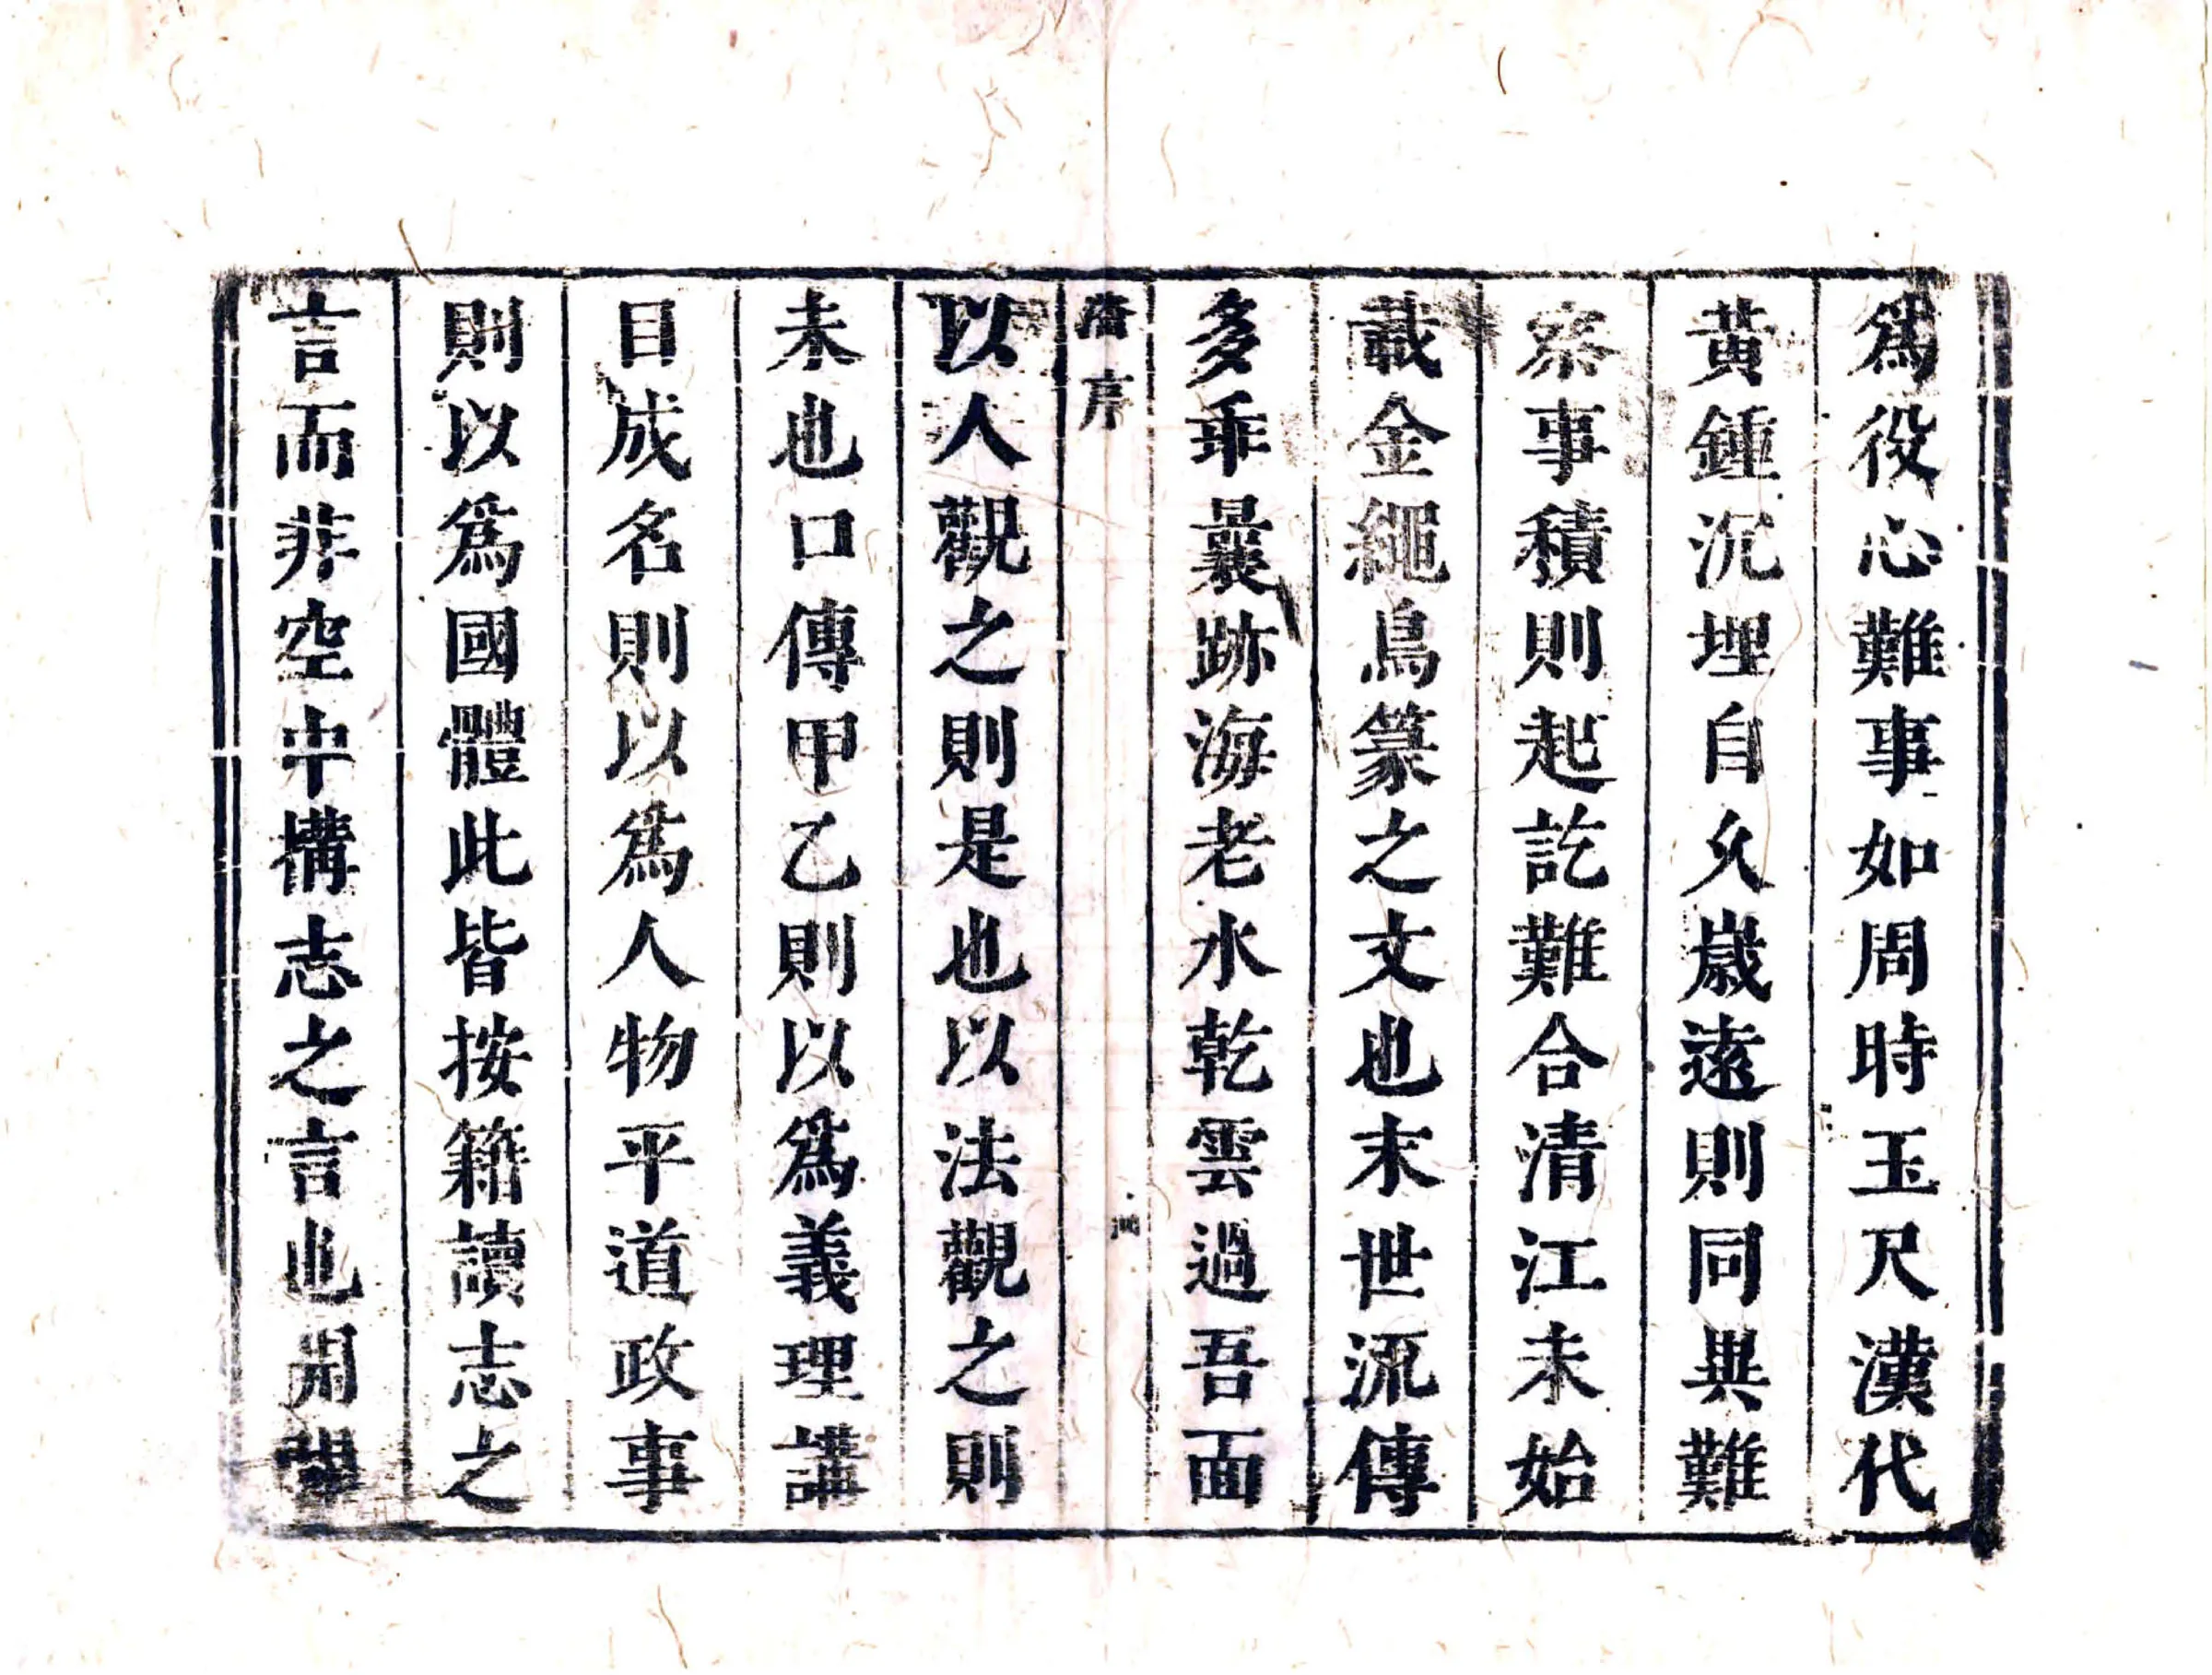 爲役心難事如周時玉尺漢代
黃鍾沉埋自久歲遠則同異難
察事積則起訖難合清江未始
載金繩鳥篆之文也末世流傳
多乖曩跡海老水乾雲過吾面
序
以人觀之則是也以法觀之則
未也口傳甲乙則以爲義理講
目成名則以爲人物平道政事
則以爲國體此皆按籍讀志之
言而非空中構志之言也開